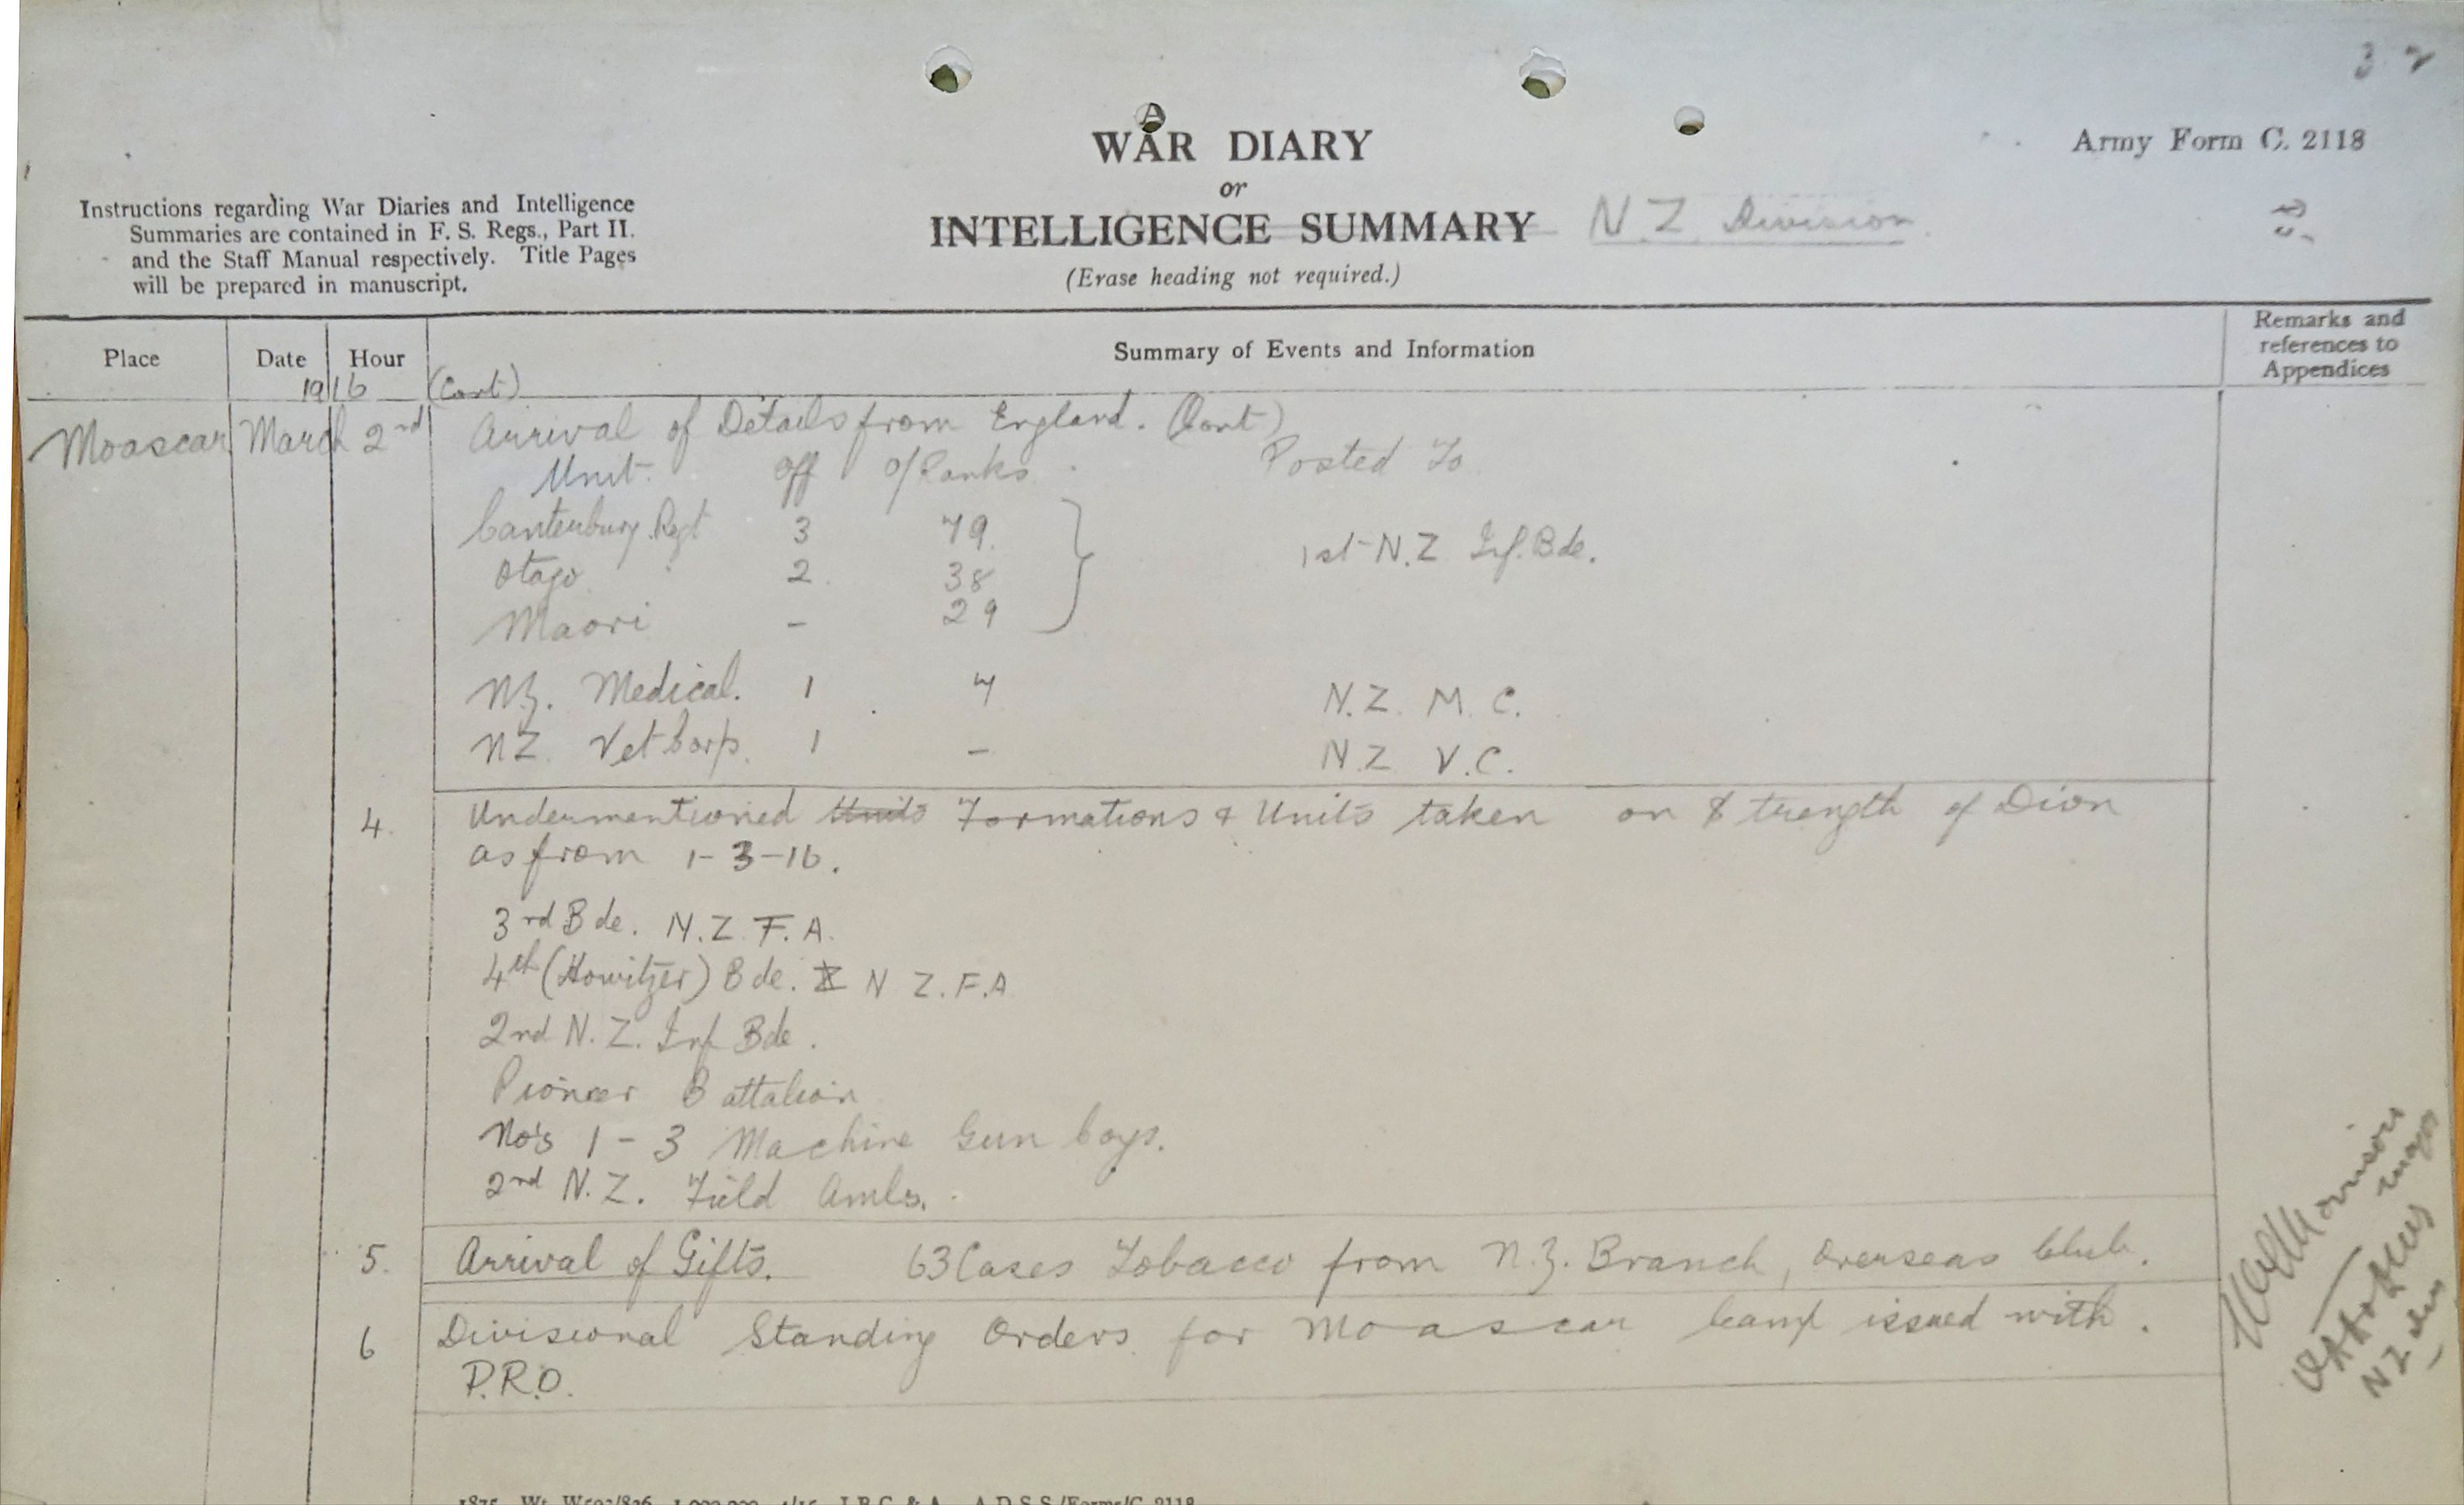 3 2
A
WAR DIARY
or
INTELLIGENCE SUMMARY N.Z. Division
(Erase heading not required.)
Army Form C. 2118
Instructions regarding War Diaries and Intelligence
Summaries are contained in F. S. Regs., Part II.
and the Staff Manual respectively. Title Pages
will be prepared in manuscript.
Place Date Hour Summary of Events and Information Remarks and
references to
Appendices
1916 (Cont)
Moascar March 2nd Arrival of Details from England. (Cont)
Unit. Off O/Ranks. Posted To
Canterbury Regt 3 79.
Otago 2. 38 1st N.Z Inf. Bde.
Maori - 29
N.Z. Medical. 1 7 N.Z. M. C.
NZ. Vet Corps. 1 - N.Z V.C.
4. Undermentioned Units Formations & Units taken on Strength of Dion
as from 1-3-16.
3rd Bde. N.Z. F. A.
4th (Howitzer) Bde. N Z. F.A
2nd N. Z. Inf Bde.
Pioneer Battalion
No's 1 - 3 Machine Gun Coys.
2nd N. Z. Field Amb.
5. Arrival of Gifts. 63 Cases Tobacco from N.Z. Branch, Overseas Club.
6 Divisional Standing Orders for Moascar Camp issued with.
D.R.O.
Major
N Z Div
1875 Wt. W593/826 1,000,000 4/15 J.B.C. & A. A.D.S.S./Forms/C. 2118